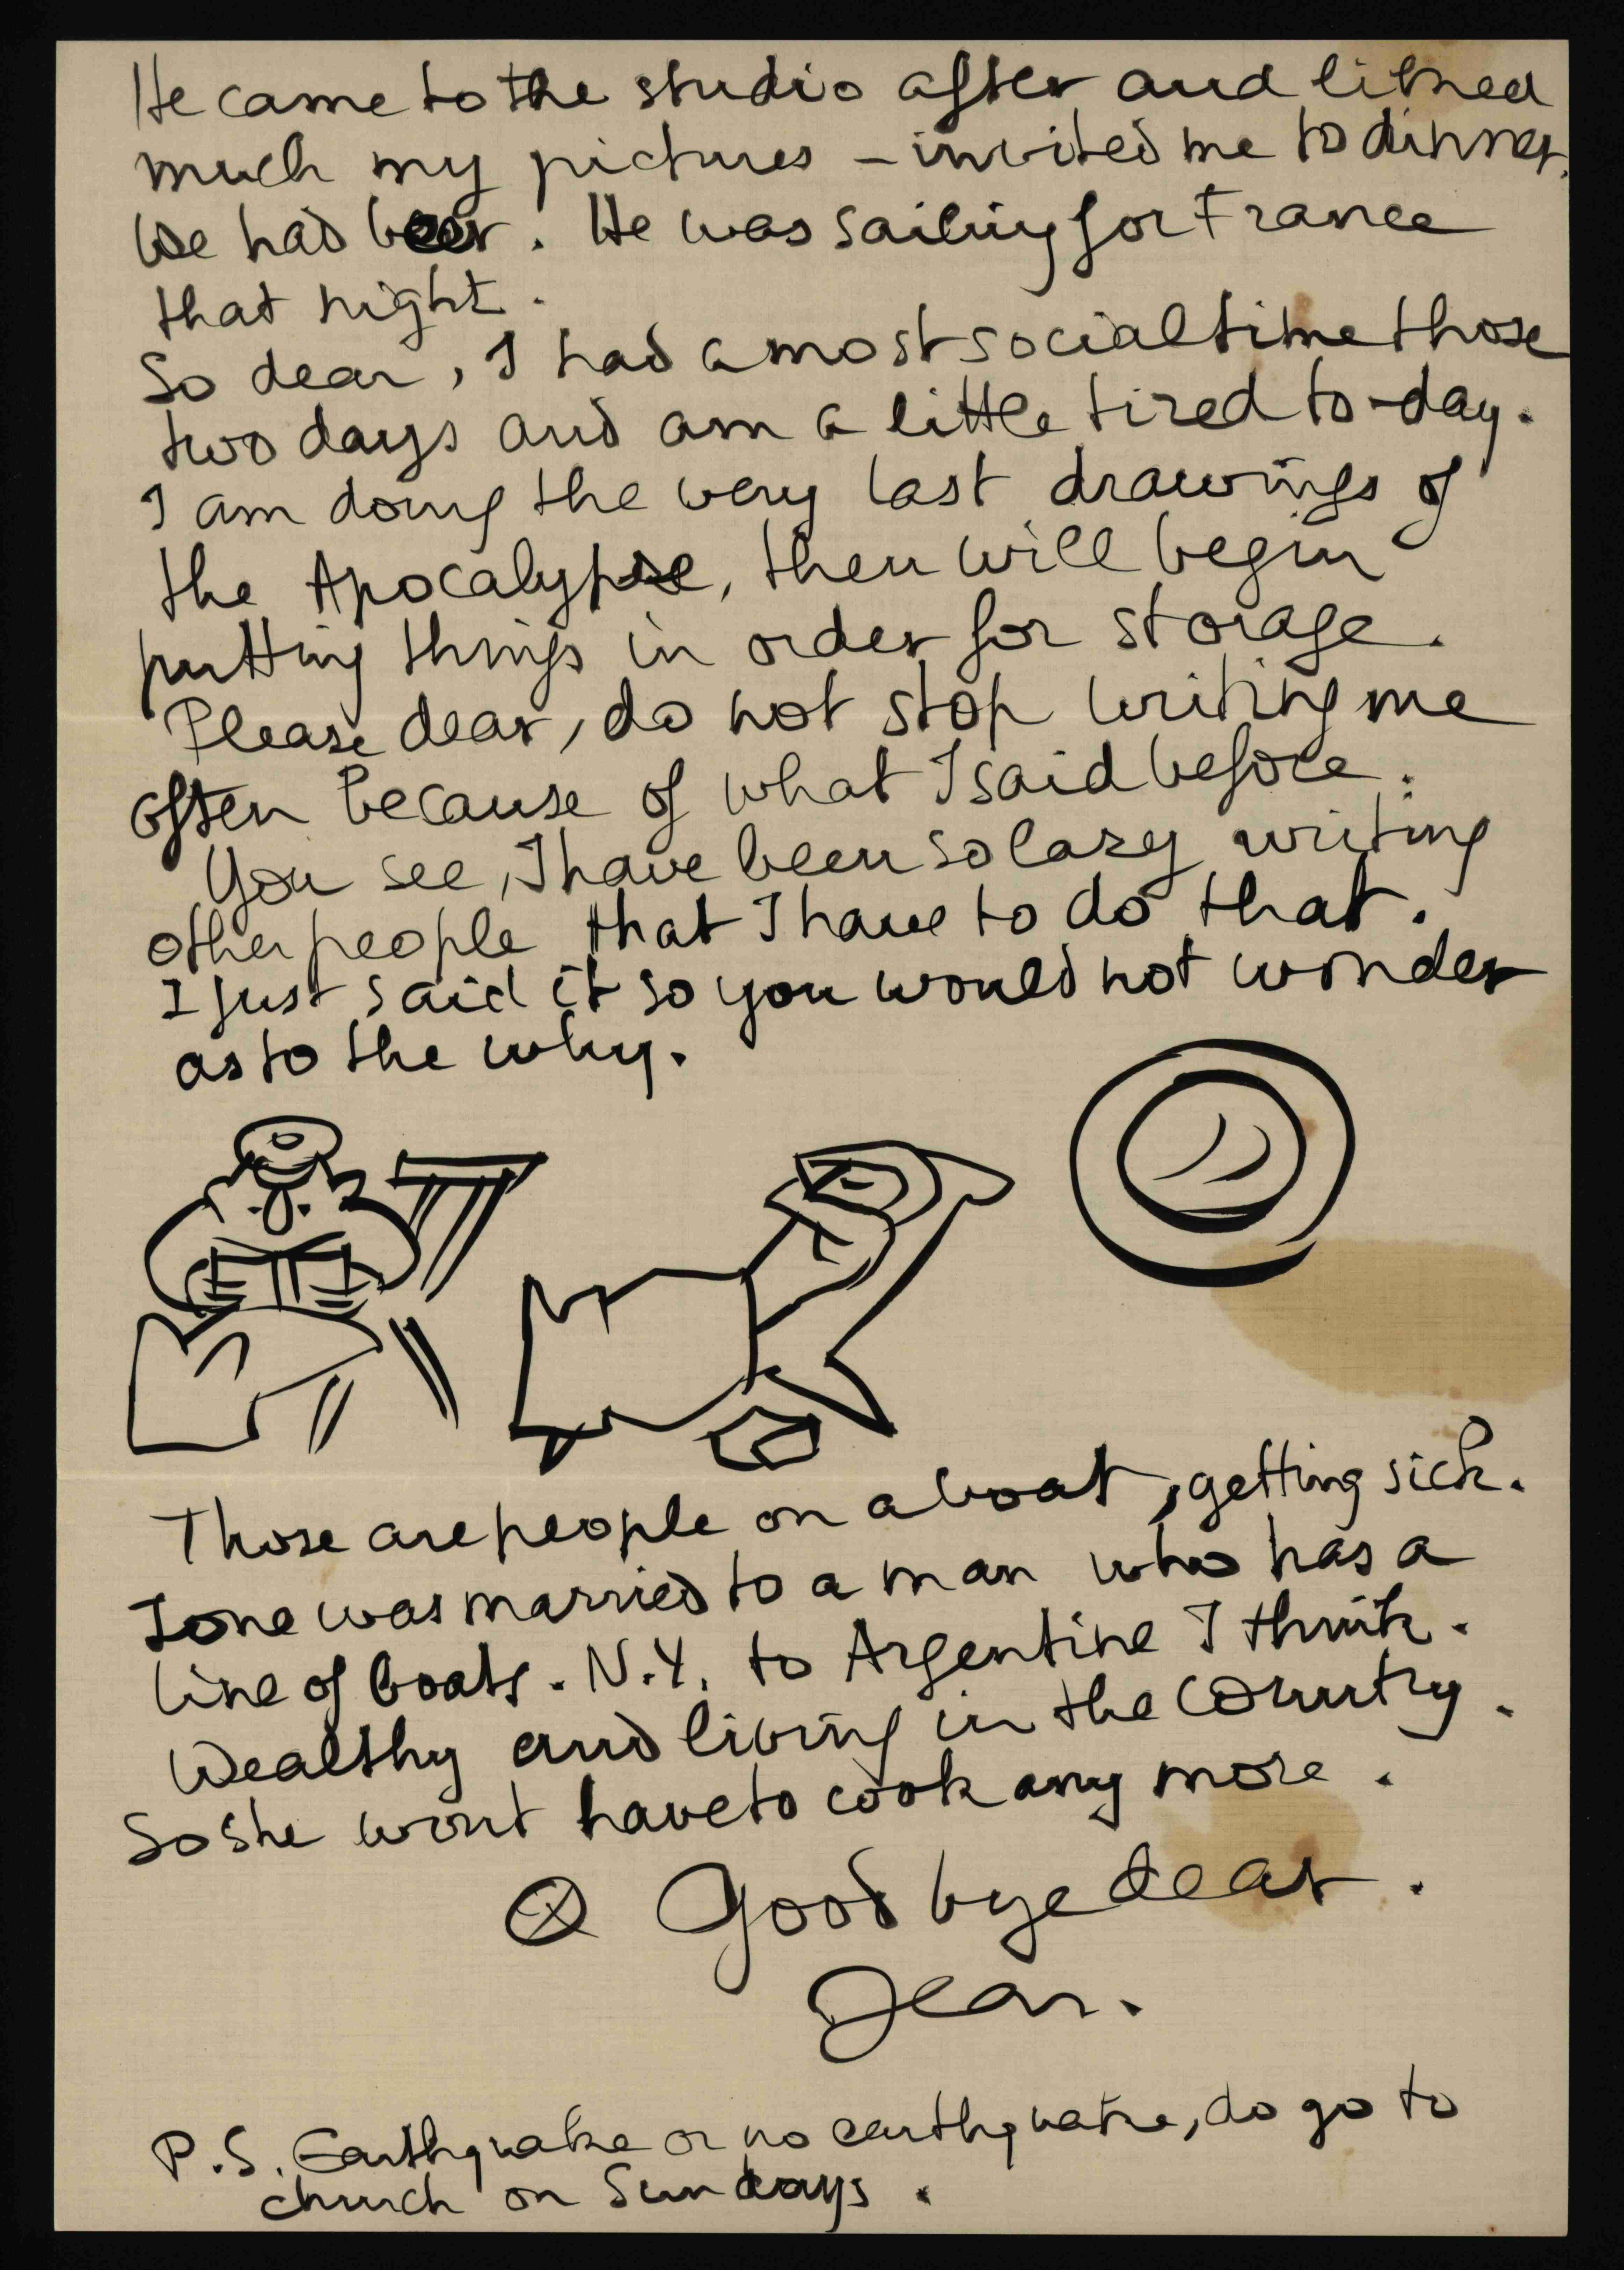 He came to the studio after and liked
much my pictures – invited me to dinner.
We had beer. He was sailing for France
that night.
So dear, I had a most social time those
two days and am a little tired to-day.
I am doing the very last drawings of
the Apocalypse, then will begin
putting things in order for storage.
Please dear, do not stop writing me
often because of what I said before.
You see, I have been so lazy writing
other people that I have to do that.
I just said it so you would not wonder
as to the why.
Those are people on a boat, getting sick.
Ione was married to a man who has a
line of boats. N.Y. to Argentine I think.
Wealthy and living in the country.
So she wont have to cook any more.
Good bye dear.
Jean.
P.S. Earthquake or no earthquake, do go to
church on Sundays.